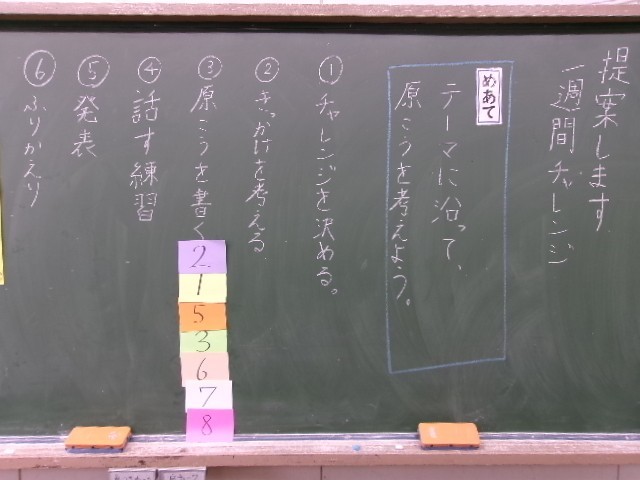 提案します
一週間チャレンジ
めあて
テーマに沿って、
原こうを考えよう。
①チャレンジを決める。
②きっかけを考える
③原こうを書く
2
1
5
3
6
7
8
④話す練習
⑤発表
⑥ふりかえり